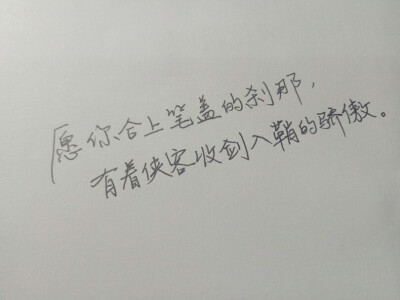 愿你合上笔盖的刹那，
有着侠客收剑入鞘的骄傲。